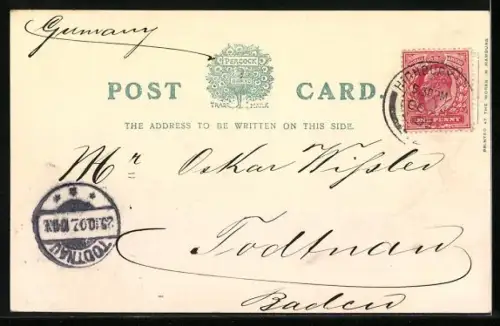 Germany
PEACOCK
TRADE MARK
POST CARD.
THE ADDRESS TO BE WRITTEN ON THIS SIDE.
ONE PENNY
PRINTED AT THE WORKS IN HAMBURG
Mr Oskar Wißler
Todtnau
Baden
TODTNAU